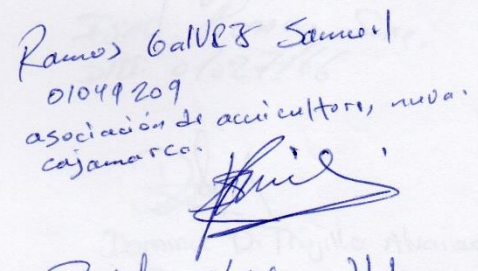 Ramos Galvez Samuel
01049209
asociación de acuicultore, nueva.
cajamarca.